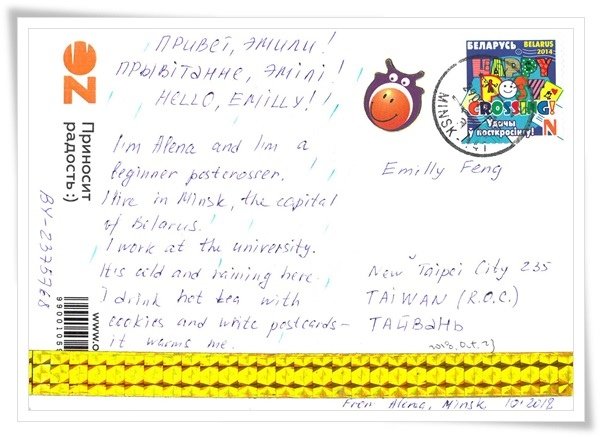 ПРИВЕТ, ЭМИЛИ!
ПРЫВІТАННЕ, ЭМІЛІ!
HELLO, EMILLY!
I'm Alena and I'm a
beginner postcrosser.
I live in Minsk, the capital
of Belarus.
I work at the university.
It is cold and raining here.
I drink hot tea with
cookies and write postcards –
it warms me.
OZ
Приносит
радость:)
BY-2375768
www.o
БЕЛАРУСЬ
BELARUS
2014
HAPPY
CROSSING!
Удачы
ў посткросінгу!
N
MINSK
Emilly Feng
New Taipei City 235
TAIWAN (R.O.C.)
ТАЙВАНЬ
From Alena, Minsk, 10.2018